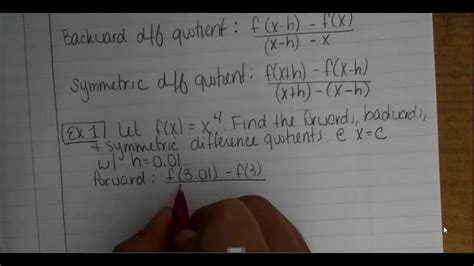 Backward diff quotient: f(x-h) - f(x) / (x-h) - x
Symmetric diff quotient: f(x+h) - f(x-h) / (x+h) - (x-h)
Ex 1 Let f(x) = x⁴. Find the forwards, backwards,
+ symmetric difference quotients @ x=c
w/ h=0.01.
forward: f(3.01) - f(3)